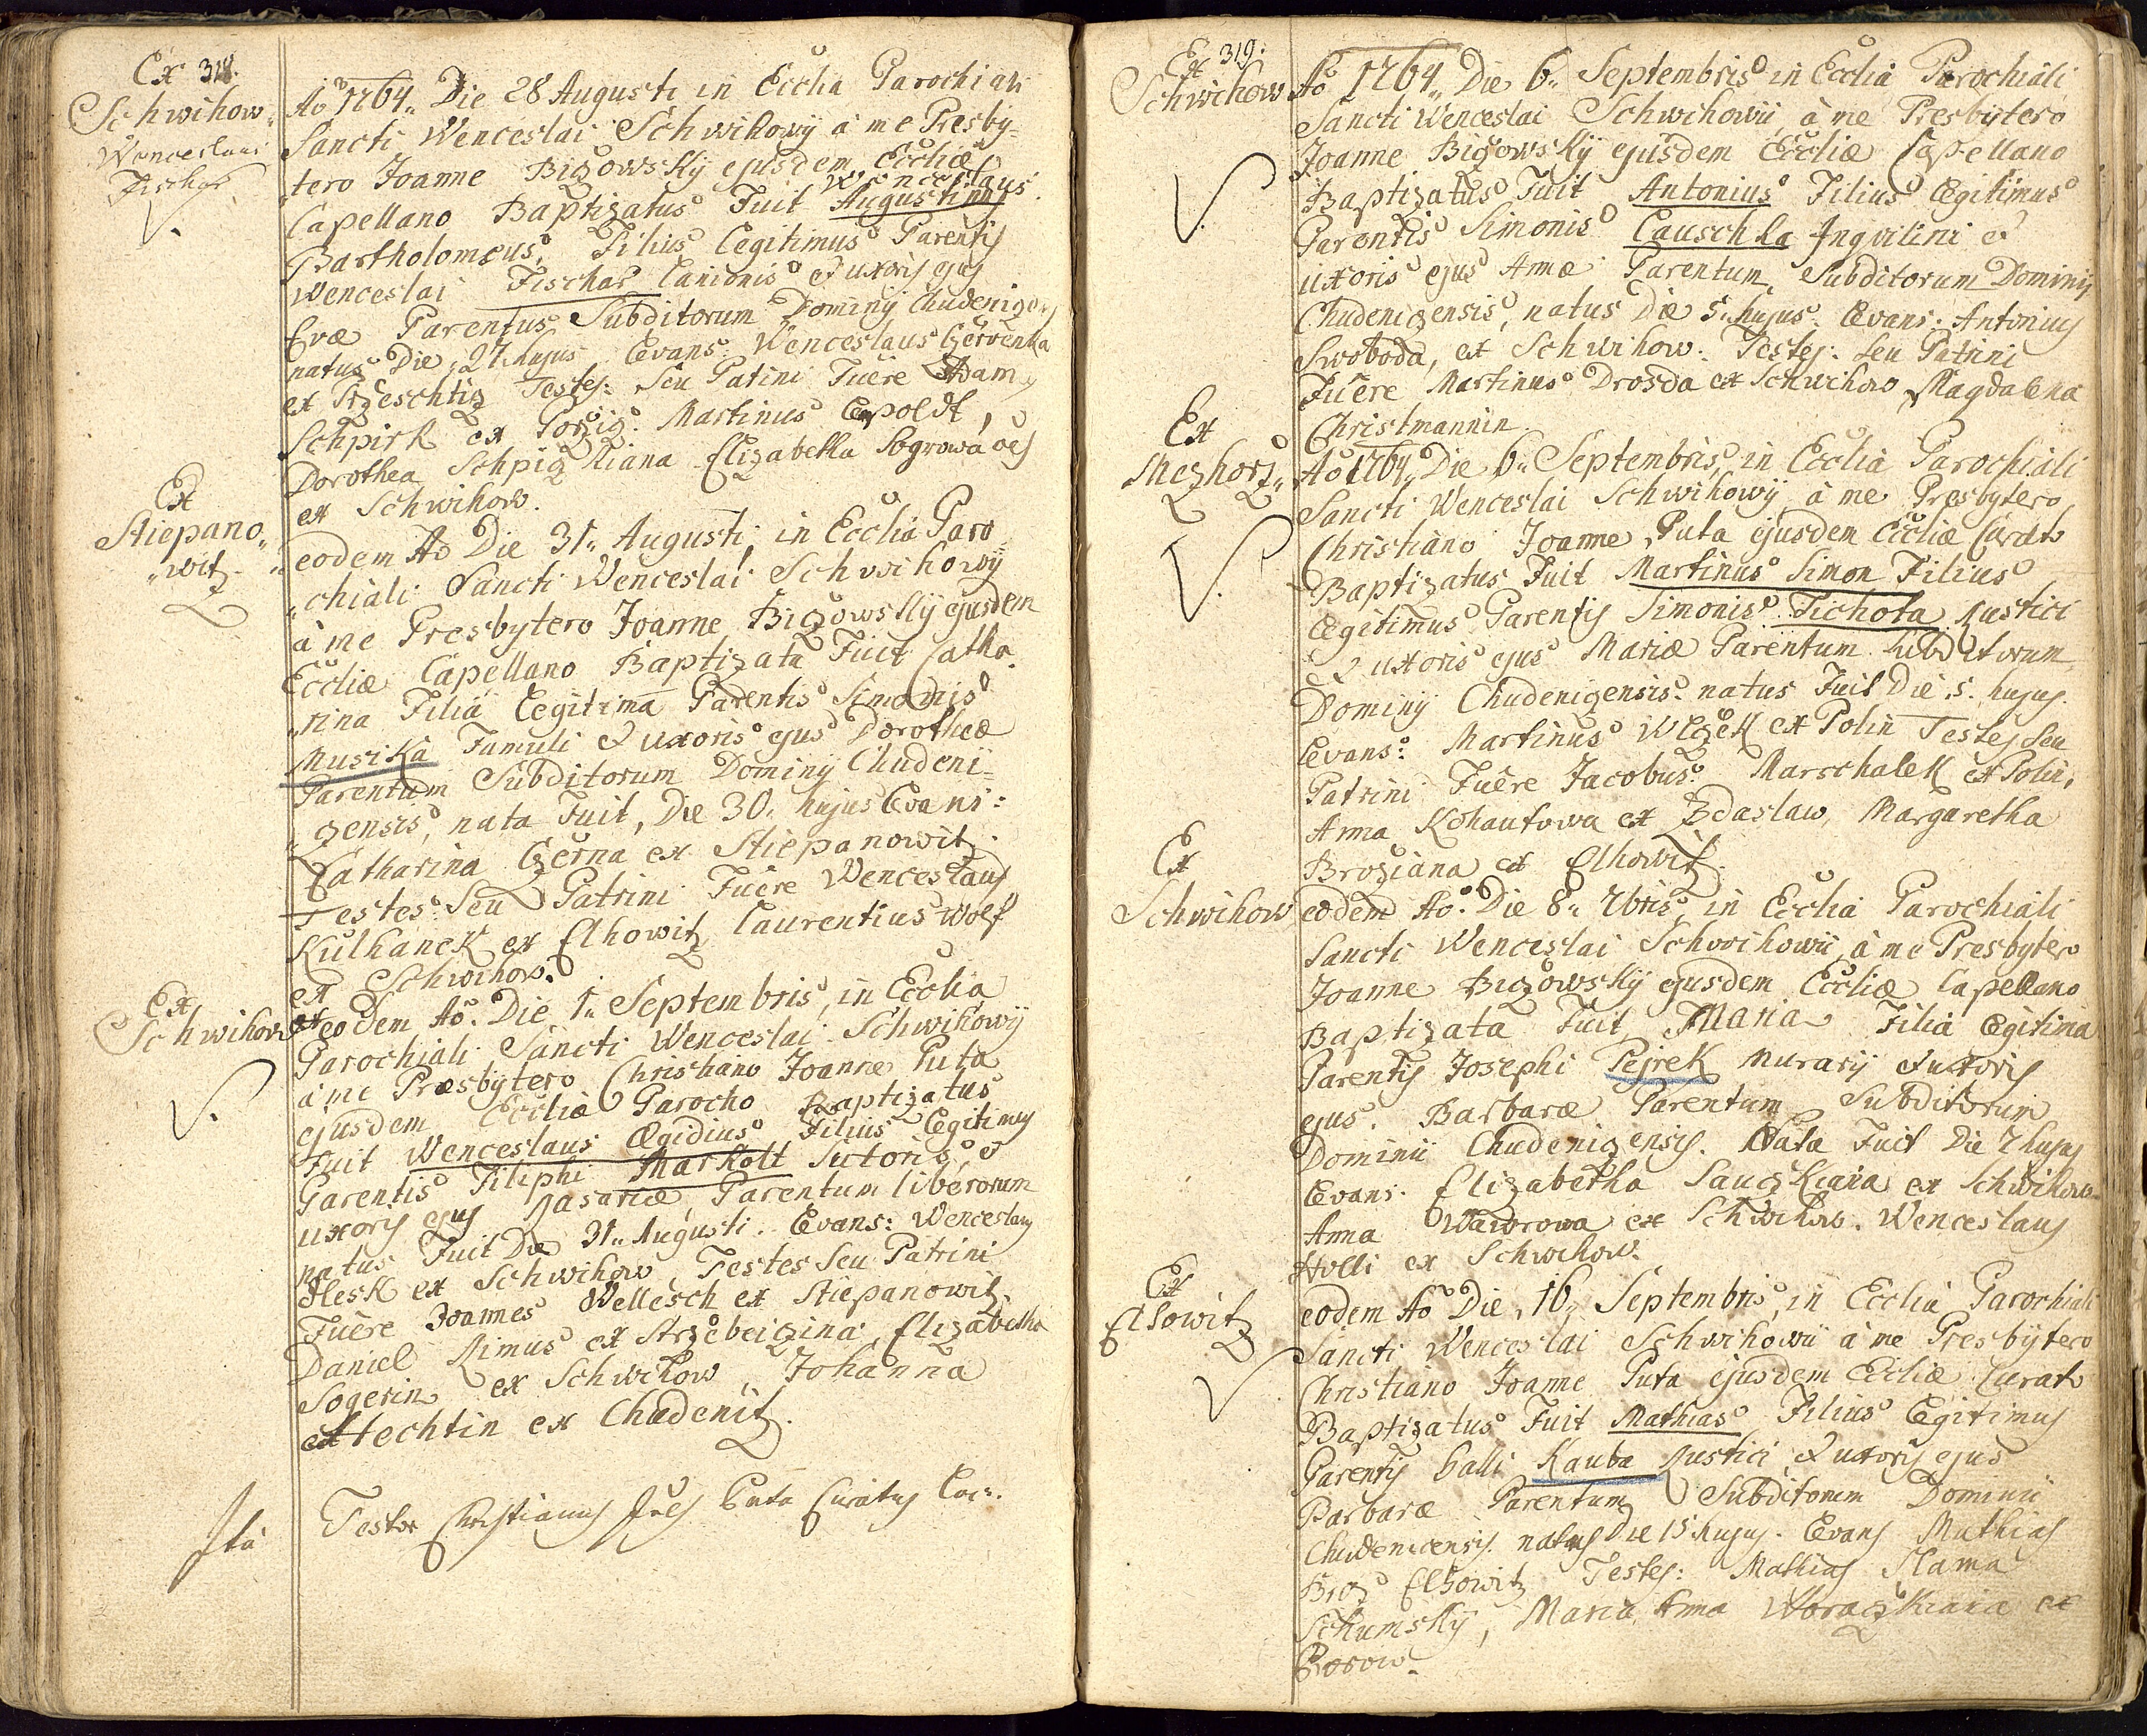 Ex 318.
Schwihow„
Wenceslaus
Fischer
Ao 1764„ Die 28 Augusti in Ecclia Parochiali
Sancti Wenceslai Schwihowÿ à me Presby=
„tero Joanne Bizowskÿ ejusdem Eccliæ
Wenceslaus
Capellano Baptizatus Fuit Augustinus
Bartholomeus, Filius Legitimus Parentis
Wenceslai Fischer Lanionis & uxoris ejus
Evæ Parentus Subditorum Dominÿ Chudenizens
natus Die 27 hujus Levans: Wenceslaus Czervenka
ex Przeschtiz Testes: Seu Patini Fuêre Adam
Schpirk ex Porziz. Martinus Leopoldt,
Dorothea Schpizliana Elizabetha Sogrowa oes
ex Schwihow.
Ex
Stiepano„
„witz
eodem Ao Die 31„ Augusti, in Ecclia Paro
„chiali Sancti Wenceslai Schwihowÿ
à me Presbytero Joanne Bizowskÿ ejusdem
Eccliæ Capellano Baptizata Fuit Catha
„rina Filia Legitima Parentis Simonis
Musika Famuli & uxoris ejus Dorotheæ
Parentum Subditorum Dominÿ Chudeni=
„zensis, nata Fuit, Die 30„ hujus Levans:
Catharina Czerna ex Stiepanowitz.
Testes: Seu Patrini Fuêre Wenceslaus
Kulhanek ex Elhowitz Laurentius Wolf
ex Schwihow.
Ex
Schwihow
eodem Ao. Die 1„ Septembris, in Ecclia
Parochiali Sancti Wenceslai Schwihowÿ
à me Præsbytero Christiano Joanne Puta
ejusdem Eccliæ Parocho Baptizatus
Fuit Wenceslaus Ægidius Filius Legitimus
Parentis Filiphi Markolt Sutoris, &
uxoris ejus Rasariæ Parentum liberorum
natus Fuit Die 31„ Augusti. Levans: Wenceslaus
Hesk ex Schwihow, Testes Seu Patrini
Fuêre Joannes Wellesch ex Stiepanowitz,
Daniel Rimus ex Strzebeizina, Elizabetha
Sogerin ex Schwihow, Johanna
Stechtin ex Chudenitz.
Ita Testor Christianus Joes Puta Curatus Loci.
Ex 319.
Schwihow
Ao 1764„ Die 6„ Septembris in Ecclia Parochiali
Sancti Wenceslai Schwihowii à me Presbytero
Joanne Bizowskÿ ejusdem Eccliæ Capellano
Baptizatus Fuit Antonius Filius Legitimus
Parentis Simonis Lauschka Inqvilini &
uxoris ejus Annæ Parentum Subditorum Dominÿ
Chudenizensis, natus Die 5„ hujus. Levans: Antonius
Swoboda, ex Schwihow: Testes: Seu Patrini
Fuêre Martinus Drosda ex Schwihow Magdalena
Christmannin.
Ex
Mezhorz„
Ao 1764„ Die 6„ Septembris, in Ecclia Parochiali
Sancti Wenceslai Schwihowÿ à me Presbytero
Christiano Joanne Puta ejusdem Eccliæ Curato
Baptizatus Fuit Martinus Simon Filius
Legitimus Parentis Simonis Tichota Rustici
& uxoris ejus Mariæ Parentum Subditorum
Dominÿ Chudenizensis. natus Fuit Die 5. hujus.
Levans: Martinus Wlzek ex Polin Testes Seu
Patrini Fuêre Jacobus Marschalek ex Polin,
Anna Kohautowa ex Zdaslaw, Margaretha
Broziana ex Elhowitz.
Ex
Schwihow
eodem Ao. Die 8„ 7bris, in Ecclia Parochiali
Sancti Wenceslai Schwihowii à me Presbytero
Joanne Bizowskÿ ejusdem Eccliæ Capellano
Baptizata Fuit Maria Filia Legitima
Parentis Josephi Pejrek Murarÿ & uxoris
ejus. Barbaræ Parentum Subditorum
Dominii Chudenizensis. Nata Fuit Die 7 hujus
Levans: Elizabetha Sauczkiana ex Schwihow
Anna Wawrowa ex Schwihow. Wenceslaus
Holli ex Schwihow.
Ex
Elhowitz
eodem Ao Die„ 16„ Septembris, in Ecclia Parochiali
Sancti Wenceslai Schwihowii à me Presbÿtero
Christiano Joanne Puta ejusdem Eccliæ Curato
Baptizatus Fuit Mathias Filius Legitimus
Parentis Galli Kauba Rustici & uxoris ejus
Barbaræ Parentum Subditorum Dominii
Chudenicensis. natus Die 15 hujus. Levans Mathias
Broz Elhowitz Testes: Mathias Slama
Schumskÿ, Maria Anna Woraczkiana ex
Borow.